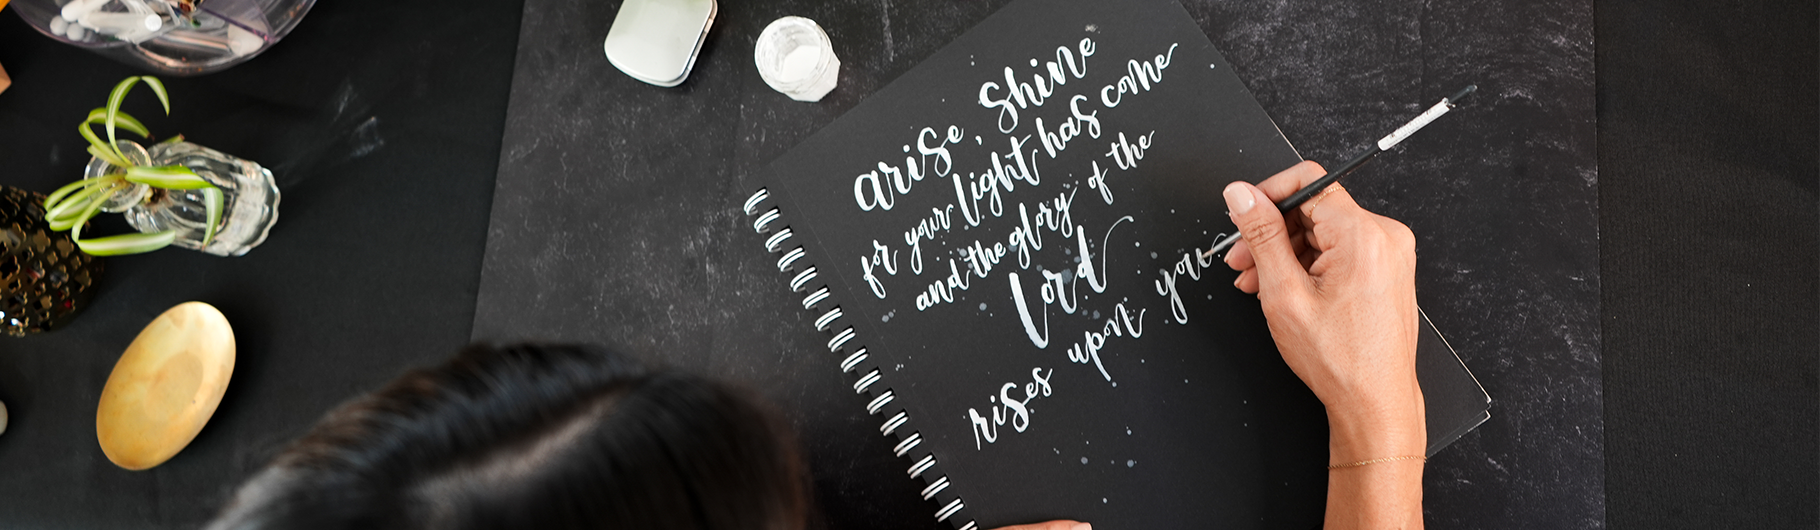 arise, shine
for your light has come
and the glory of the
lord
rises upon you